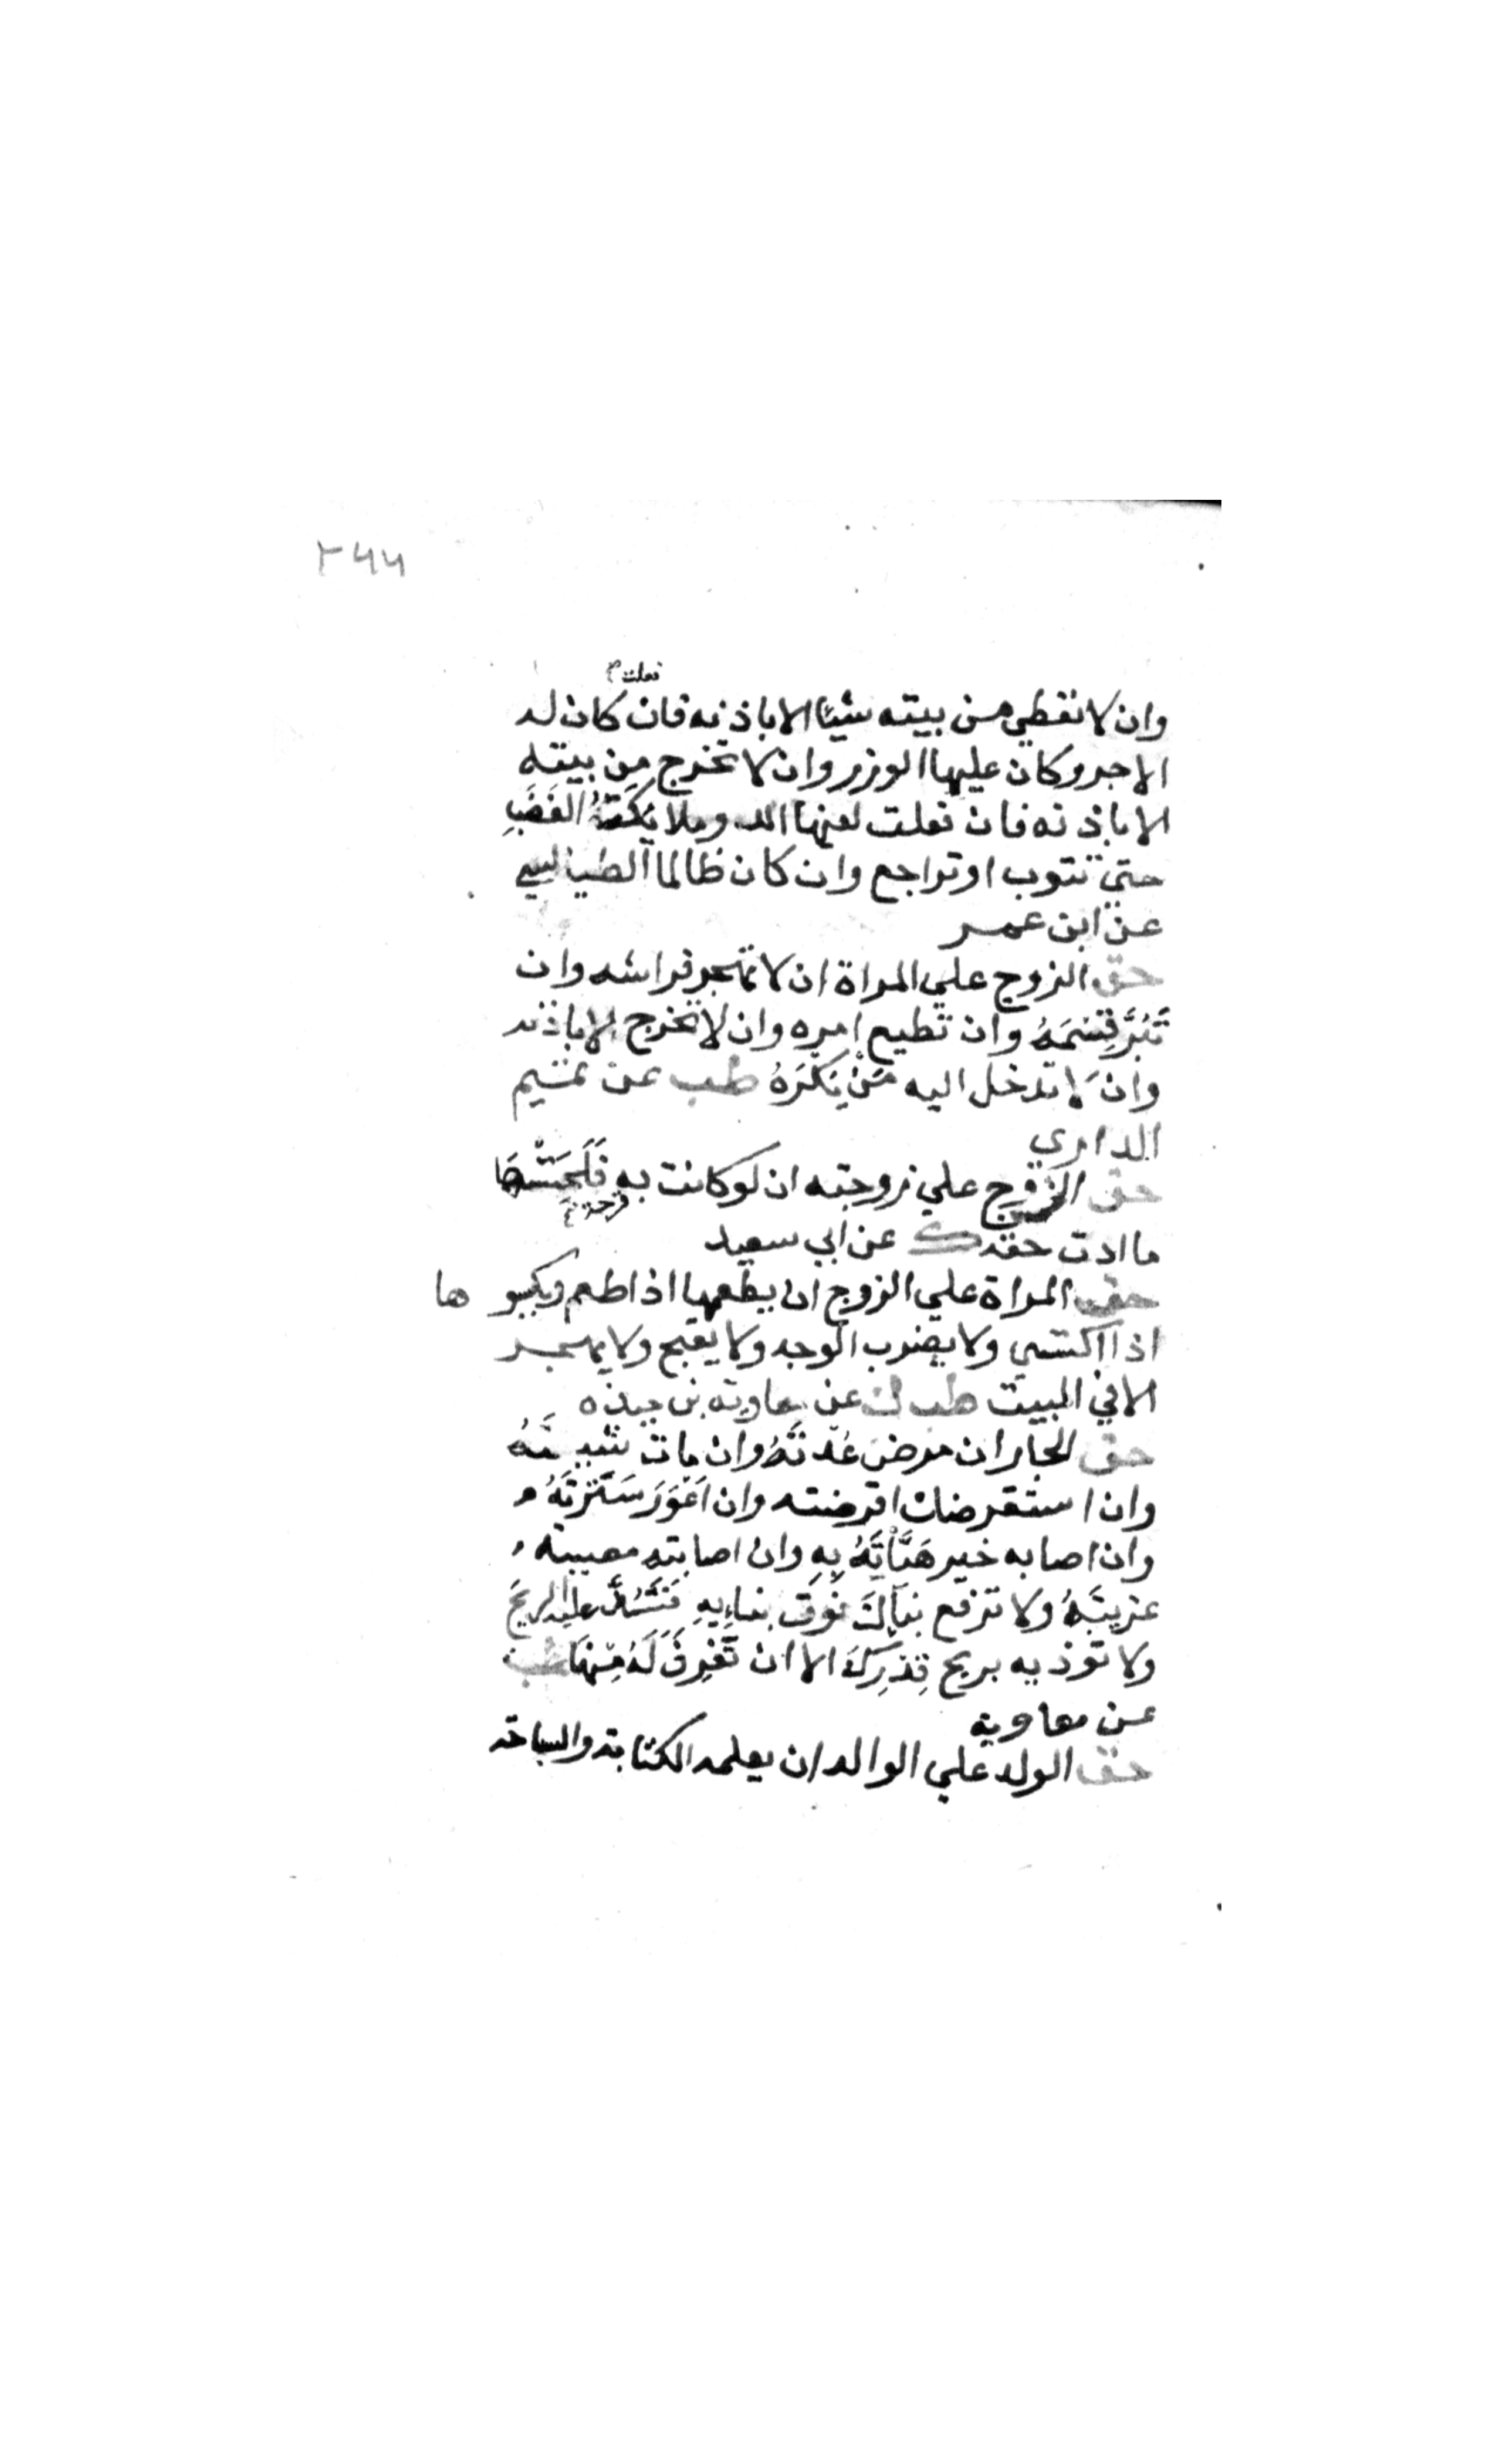 ٢٦٦
فعلت
وان لا تعطي من بيته شيئا الا باذنه فان كان له
الاجر وكان عليها الوزر وان لا تخرج من بيته
الا باذنه فان فعلت لعنها الله وملائكَتهُ الغَضَبِ
حتي تتوب او تراجع وان كان ظالما الطيالسي
عن ابن عمر
حق الزوج علي المراة ان لا تهجر فراشه وان
تَبُرَّ قِسَمَهُ وان تطيع امره وان لا تخرج الا باذنه
وان لا تدخل اليه مَنْ يَكْرَهُ طب عن تميم
الداري
حق الزوج علي زوجته ان لو كانت به فَلَحَسَتْهَا
قرحة
ما ادت حقه ك عن ابي سعيد
حق المراة علي الزوج ان يطعمها اذا طعم ويكسوها
اذا اكتسي ولا يضرب الوجه ولا يقبح ولا يهجر
الا في البيت طب ك عن معاوية بن حيده
حق الجار ان مرض عُدتَهُ وان مات شيعتَهُ
وان استقرضك اقرضته وان اَعْوَرَ سَتَرْتَهُ
وان اصابه خير هَنَّأْتَهُ بِهِ وان اصابته مصيبة
عزيتَهُ ولا ترفع بناكَ فوقَ بناءِيهِ فَتَسُدَّ عليه الريحَ
ولا توذيه بريح قِدْرِكَ الا ان تَغْرِفَ لَهُ مِنْهَا طب
عن معاوية
حق الولد علي الوالد ان يعلمه الكتابة والسباحة